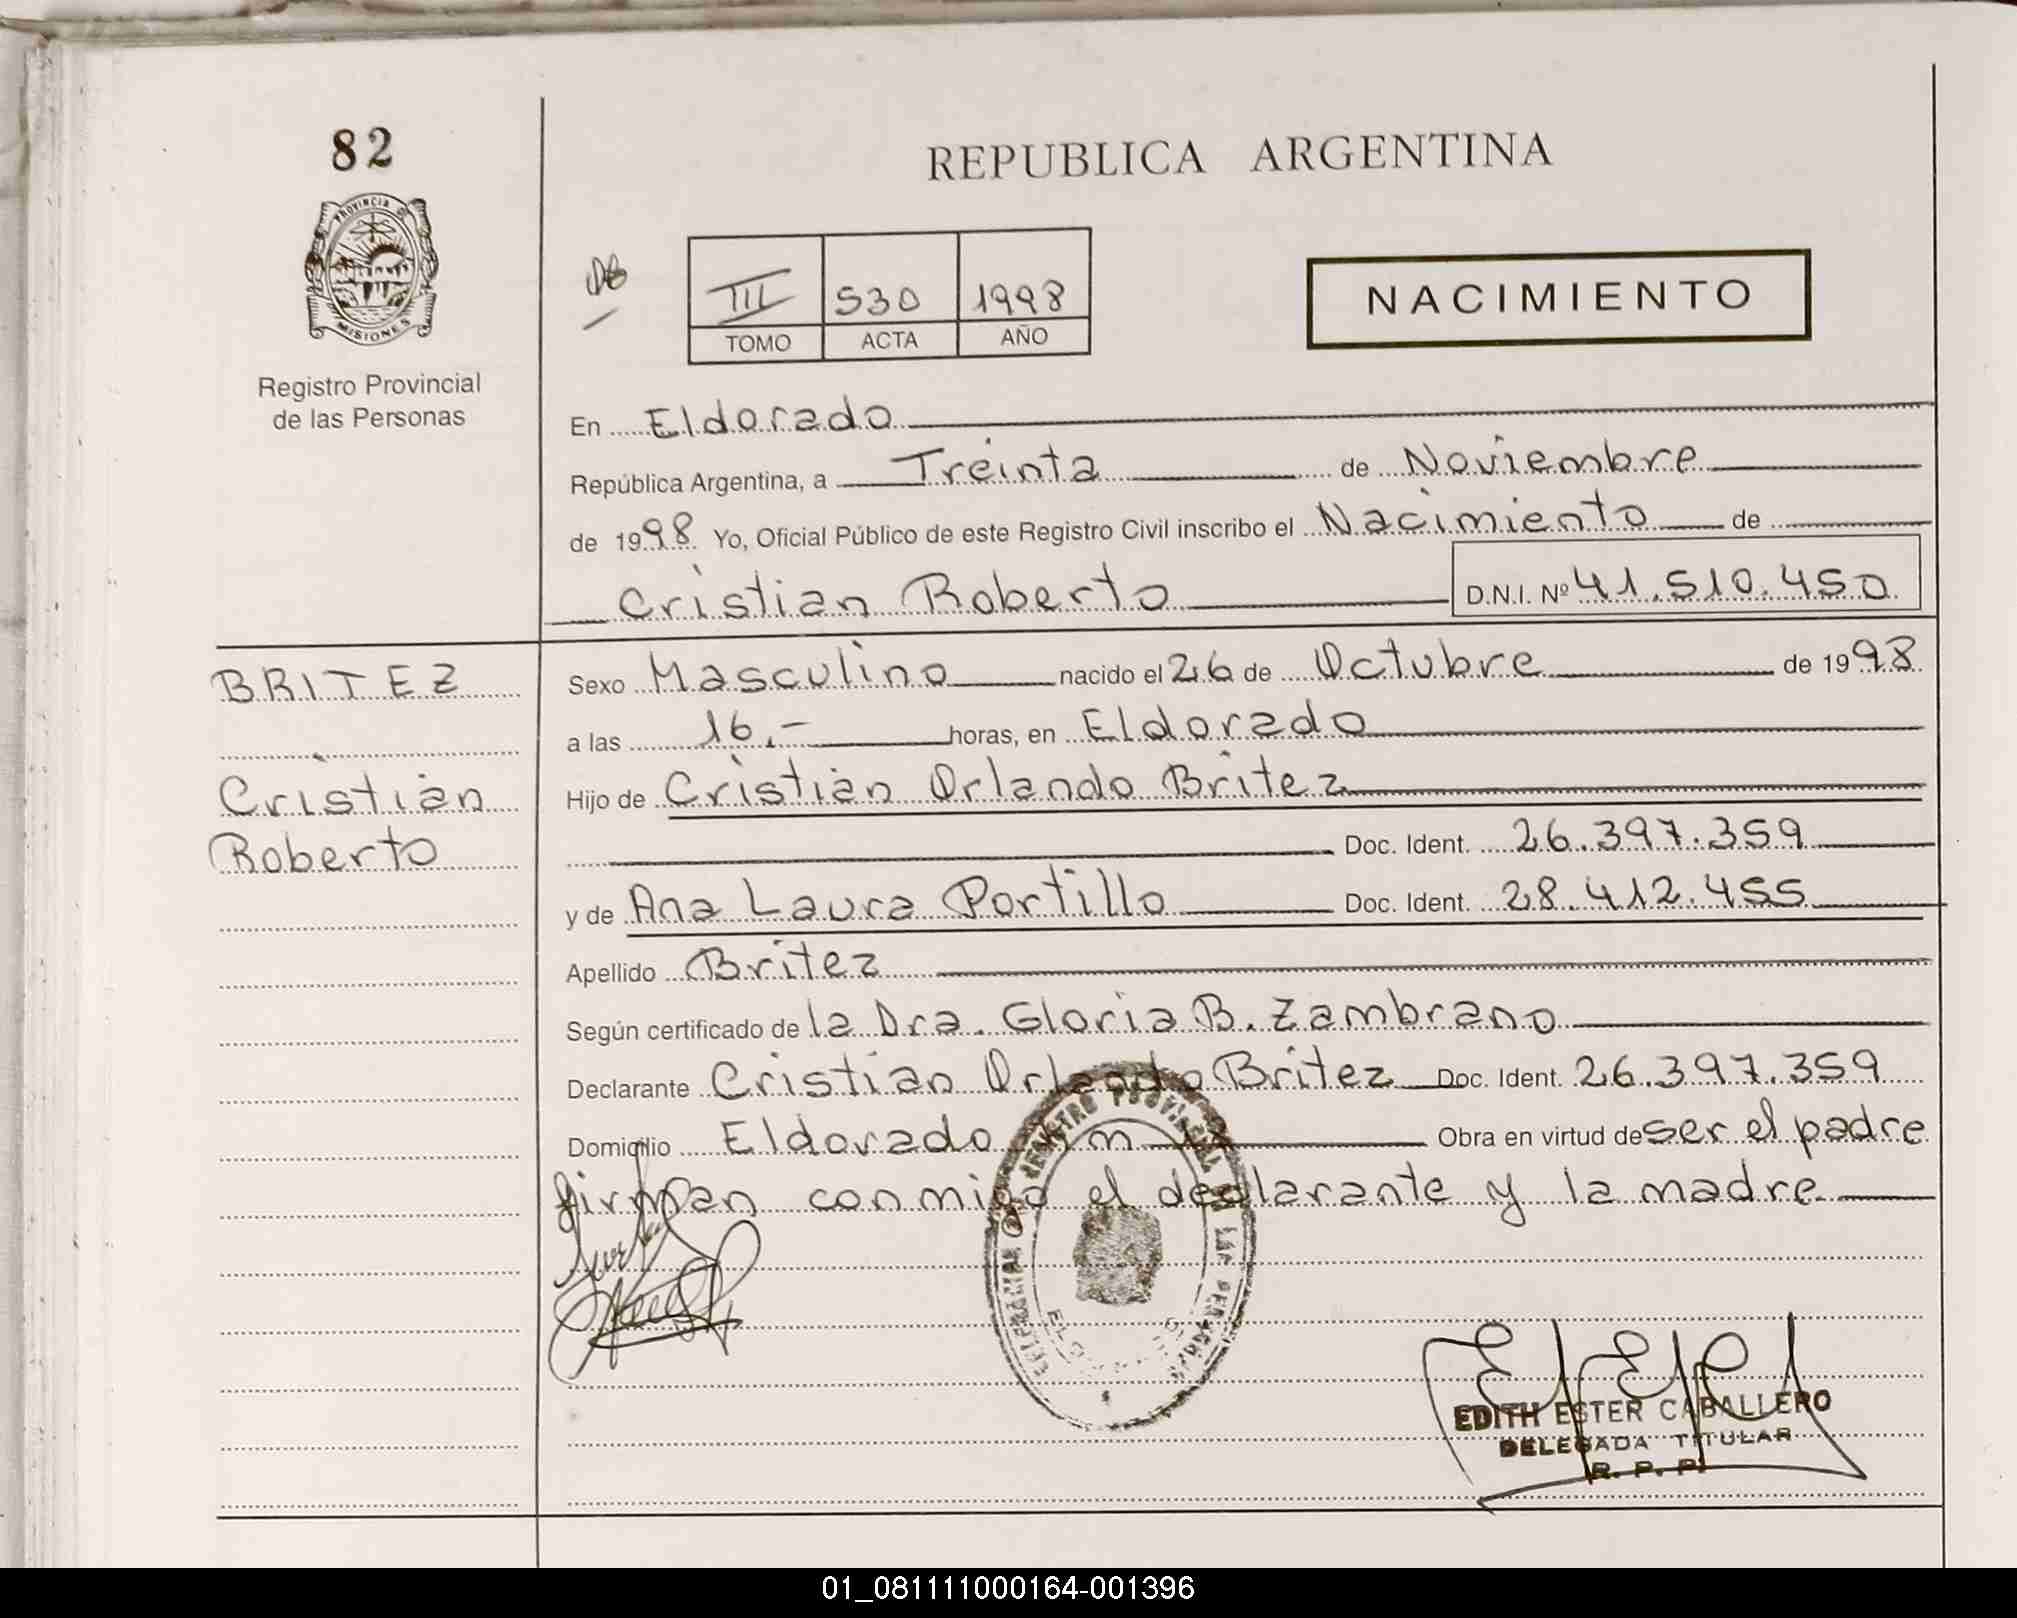 82
REPUBLICA ARGENTINA
PROVINCIA DE
MISIONES
Registro Provincial
de las Personas
III 530 1998
TOMO ACTA AÑO
NACIMIENTO
En Eldorado
República Argentina, a Treinta de Noviembre
de 1998 Yo, Oficial Público de este Registro Civil inscribo el Nacimiento de
Cristian Roberto D.N.I. Nº 41.510.450
BRITEZ
Cristian
Roberto
Sexo Masculino nacido el 26 de Octubre de 1998
a las 16.- horas, en Eldorado
Hijo de Cristian Orlando Britez
Doc. Ident. 26.397.359
y de Ana Laura Portillo Doc. Ident. 28.412.455
Apellido Britez
Según certificado de la Dra. Gloria B. Zambrano
Declarante Cristian Orlando Britez Doc. Ident. 26.397.359
Domicilio Eldorado Km Obra en virtud de ser el padre
firman conmigo el declarante y la madre
EDITH ESTER CABALLERO
DELEGADA TITULAR
R. P. P.
01_081111000164-001396